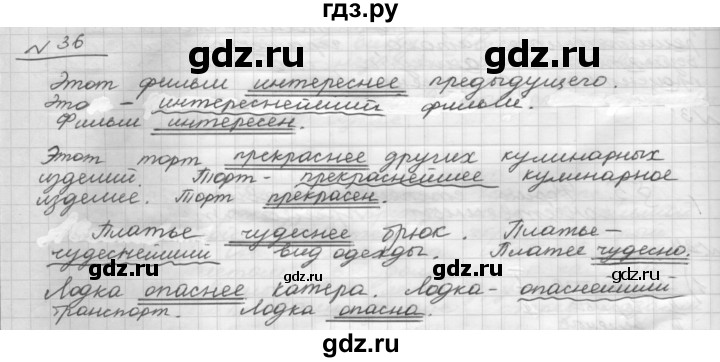 гдз.ру
№36
gdz.ru gdz.ru
Этот фильм интереснее предыдущего.
Это - интереснейший фильм.
Фильм интересен.
gdz.ru
Этот торт прекраснее других кулинарных
изделий. Торт - прекраснейшее кулинарное
изделие. Торт прекрасен.
gdz.ru gdz.ru
Платье чудеснее брюк. Платье -
чудеснейший вид одежды. Платье чудесно.
gdz.ru
Лодка опаснее катера. Лодка - опаснейший
транспорт. Лодка опасна.
gdz.ru
gdz.ru